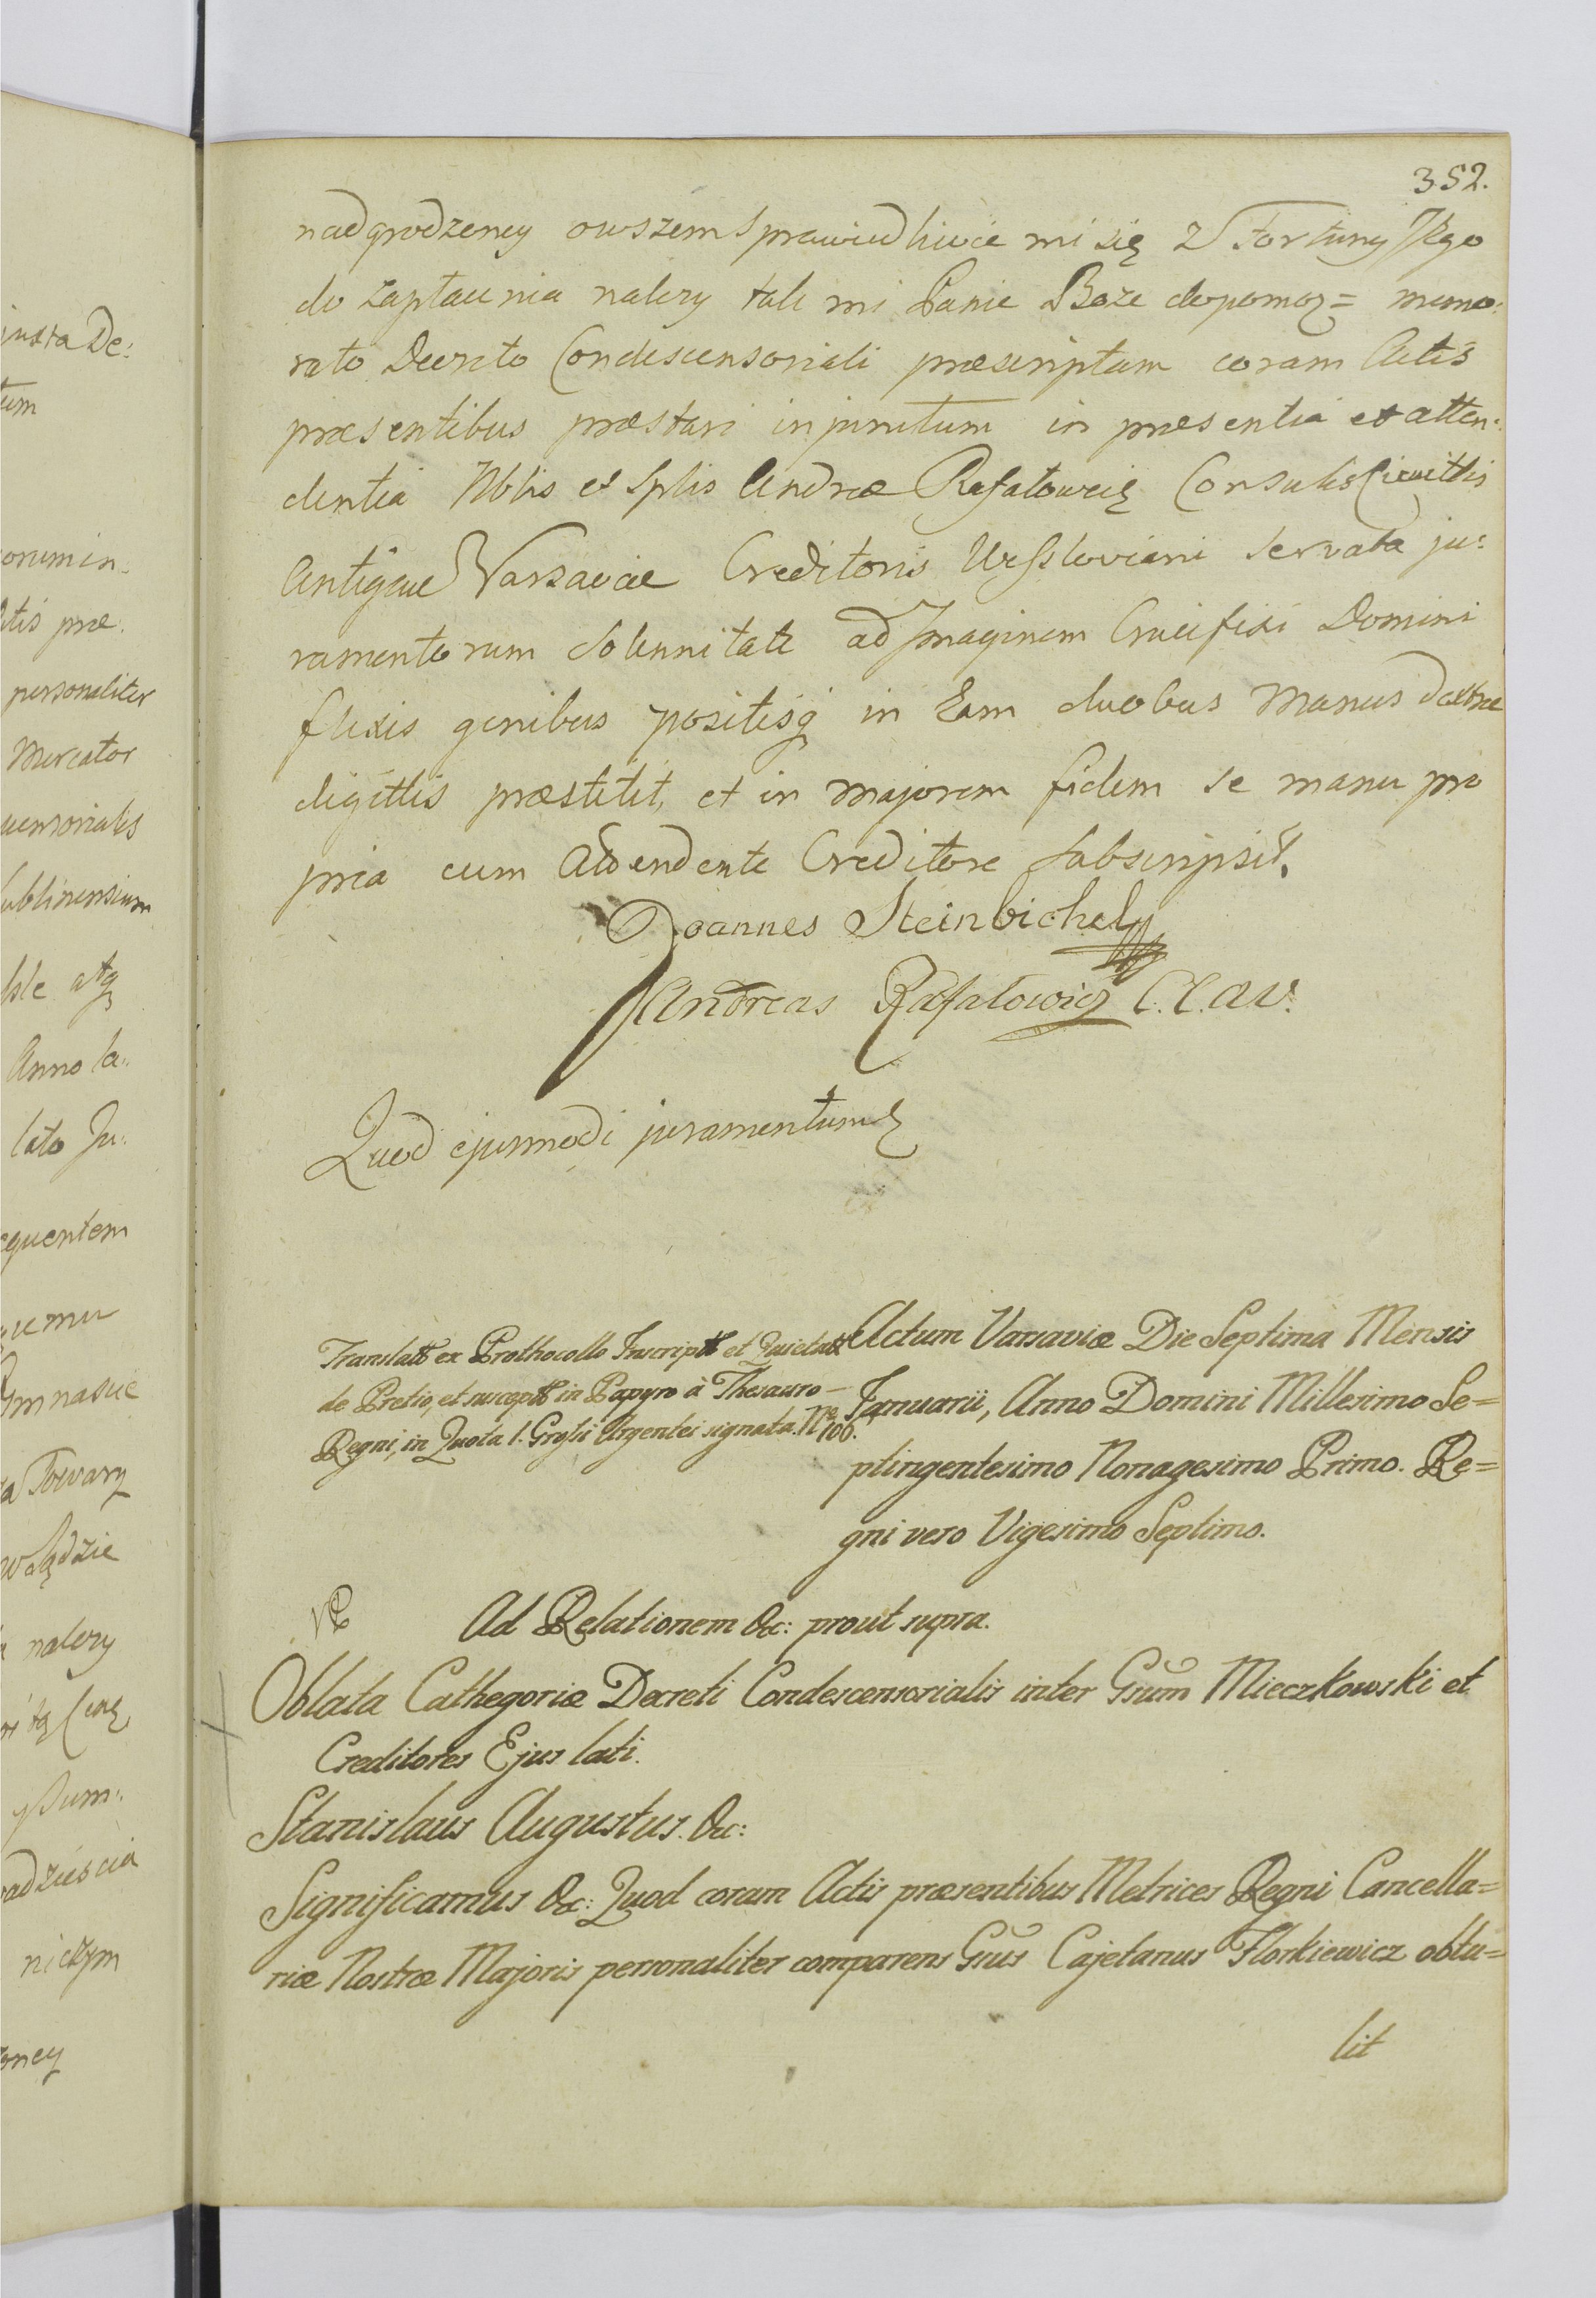 352.
nadgrodzeney owszem sprawiedliwie mi się z Fortuny Jego
do zapłacenia należy tak mi Panie Boże dopomoz= memo:
rato Decreto Condescensoriali præscriptum coram Actis
præsentibus præstari injunctum in præsentia et atten:
dentia Nblis et Splis Andreæ Rafałowicz Consulis Civittis
Antiquæ Varsaviæ Creditoris Wessloviani servata ju:
ramentorum Solennitate ad Imaginem Crucifixi Domini
flexis genibus positisq in Eam duobus Manus dextræ
digittis præstitit, et in majorem fidem se manu pro
pria cum Attendente Creditore Subscripsit.
Joannes Steinbichel
Andreas Rafałowicz C.C.A.V.
Quod ejusmodi juramentum
Translatt ex Prothocollo Inscriptt et Quietatt
de Pretio, et susceptt in Papyro à Thesauro
Regni, in Quota 1. Grossi Argentei signata. Nro 106.
Actum Varsaviæ Die Septima Mensis
Januarii, Anno Domini Millesimo Se=
ptingentesimo Nonagesimo Primo. Re=
gni vero Vigesimo Septimo.
Ad Relationem &c: prout supra.
Oblata Cathegoriæ Decreti Condescensorialis inter Gsum Mieczkowski et
Creditores Ejus lati.
Stanislaus Augustus. &c:
Significamus &c: Quod coram Actis præsentibus Metrices Regni Cancella=
riæ Nostræ Majoris personaliter comparens Gsus Cajetanus Florkiewicz obtu=
lit
juxta De:
tum
orum in:
ctis præ:
personaliter
Mercator
censorialis
Lublinensium
atq
Anno la:
lato Ju:
equentem
Towary
należy
adzieścia
niczym
oney